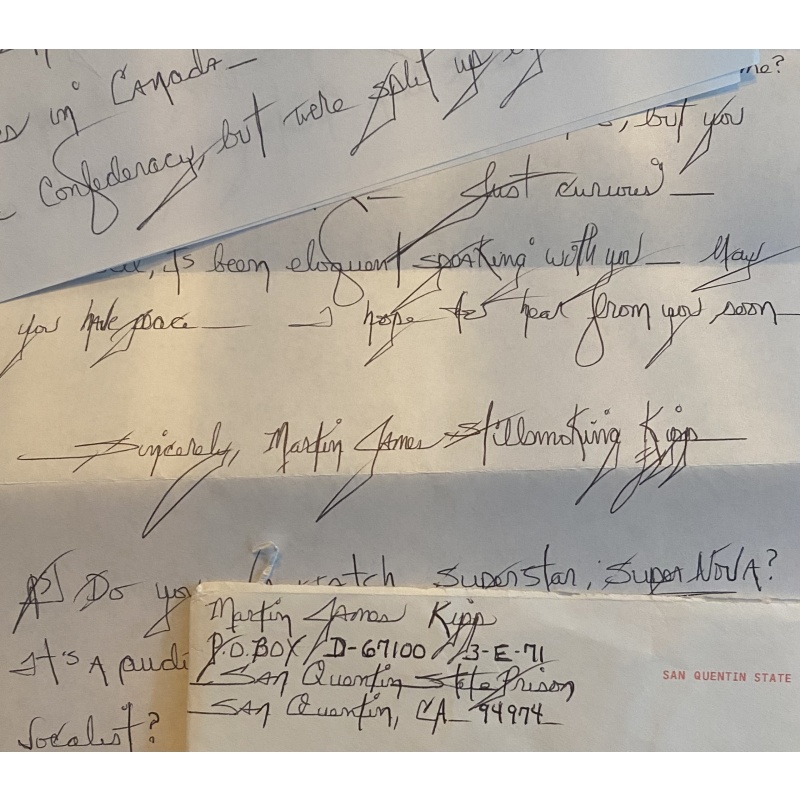 in Canada—
Confederacy, but were split up by
me?
, but you
Just curious—
, its been eloquent speaking with you— May
you have peace— I hope to hear from you soon—
Sincerely, Martin James Stillsmoking Kipp
PS Do you watch Superstar, SuperNOVA?
It's A
Vocalist?
Martin James Kipp
P.O. BOX / D-67100 / 3-E-71
San Quentin State Prison
San Quentin, CA 94974
SAN QUENTIN STATE